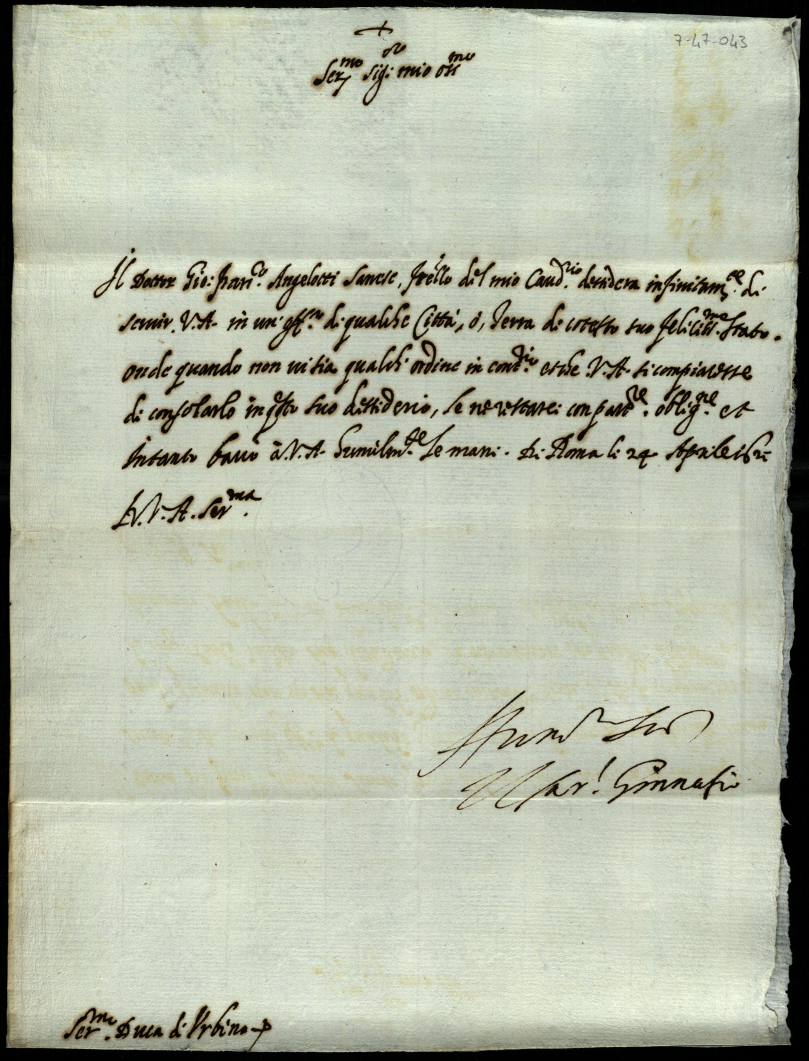 7-47-043
+
Ser.mo Sig.re mio oss.mo
Il Dottor Gio: Fran.co Angelotti Sanese, frello del mio Caud.rio desidera infinitam.te di
servir V.A. in un' di qualche Città, ò, Terra di cotesto suo feliciss.mo Stato.
onde quando non vi sia qualch' ordine in cont.rio et che V.A. si compiacesse
di consolarlo in q.sto suo desiderio, le ne restarei con part.re oblig.ne et
intanto bacio à V.A. humilm.te le mani. Di Roma li 24 Aprile
Di V.A. Ser.ma
Il Car.l Ginnasio
Ser.mo Duca di Urbino